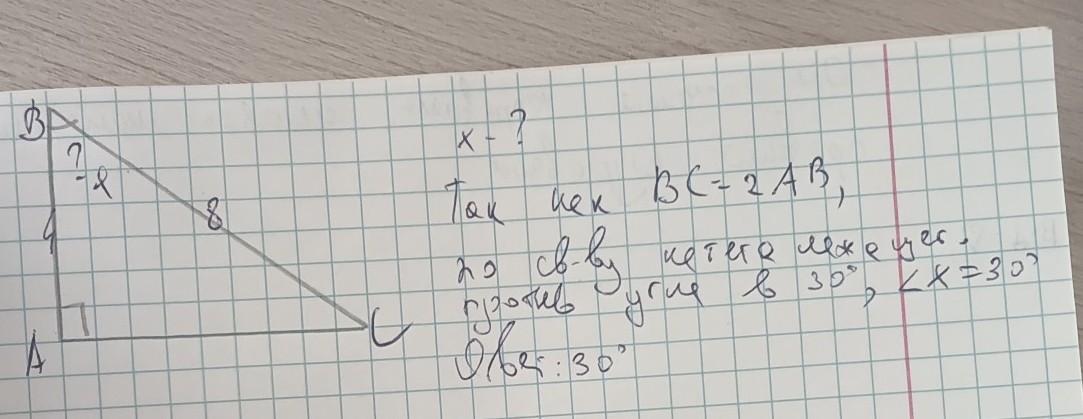 B
?
-x
4
8
A
C
x - ?
Так как BC = 2AB,
по св-ву катета лежащег.
против угла в 30°, ∠x = 30°
Ответ: 30°